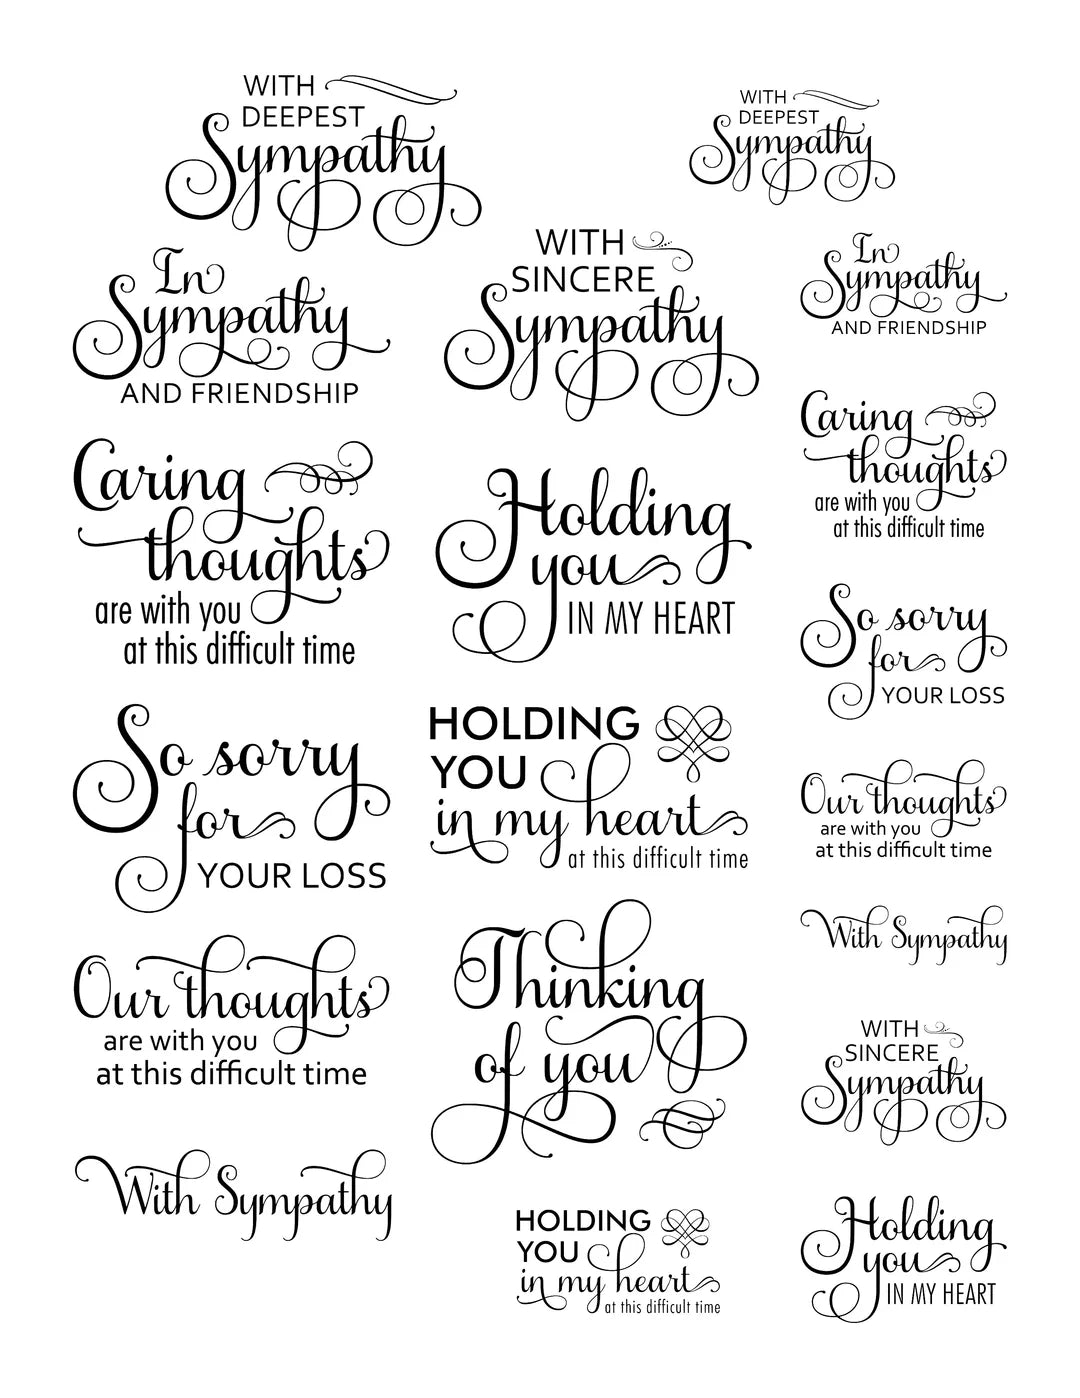 WITH
DEEPEST
Sympathy
WITH
DEEPEST
Sympathy
In
Sympathy
AND FRIENDSHIP
WITH
SINCERE
Sympathy
In
Sympathy
AND FRIENDSHIP
Caring
thoughts
are with you
at this difficult time
Holding
you
IN MY HEART
Caring
thoughts
are with you
at this difficult time
So sorry
for
YOUR LOSS
So sorry
for
YOUR LOSS
HOLDING
YOU
in my heart
at this difficult time
Our thoughts
are with you
at this difficult time
Our thoughts
are with you
at this difficult time
Thinking
of you
With Sympathy
WITH
SINCERE
Sympathy
With Sympathy
HOLDING
YOU
in my heart
at this difficult time
Holding
you
IN MY HEART